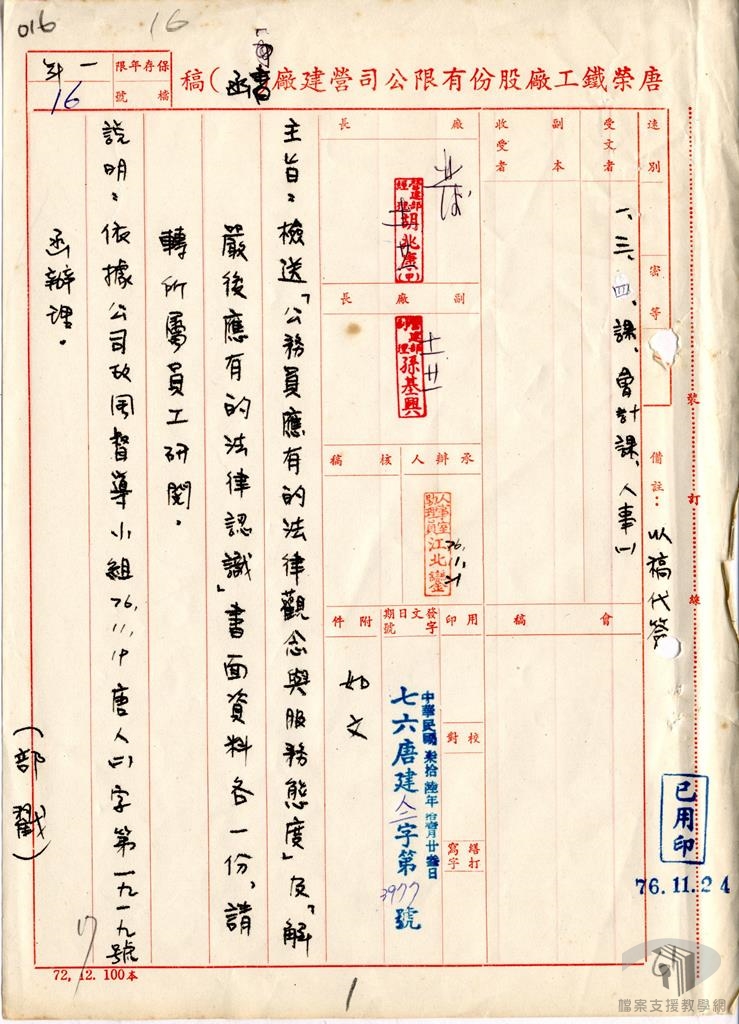 016
16
唐榮鐵工廠股份有限公司營建廠(書函)稿
保存年限
檔號
一
16
速別
密等
備註：以稿代簽
受文者
一、三、四、課、會計課、人事㈡
副本
收受者
廠長
營建部
經理 胡兆康
副廠長
營建部
副理 孫基興
十一
廿一
承辦人
核稿
人事室
助理員 江北鑾
76.11.21
會稿
用印
發文日期
字號
附件
如文
校對
繕打
寫字
中華民國柒拾陸年拾壹月廿叁日
七六唐建人㈡字第3977號
主旨：檢送「公務員應有的法律觀念與服務態度」及「解
嚴後應有的法律認識」書面資料各一份，請
轉所屬員工研閱。
說明：依據公司政風督導小組76.11.19唐人㈡字第一九一九號
函辦理。
(部戳)
裝訂線
已用印
76.11.24
72. 12. 100本
1
17
檔案支援教學網